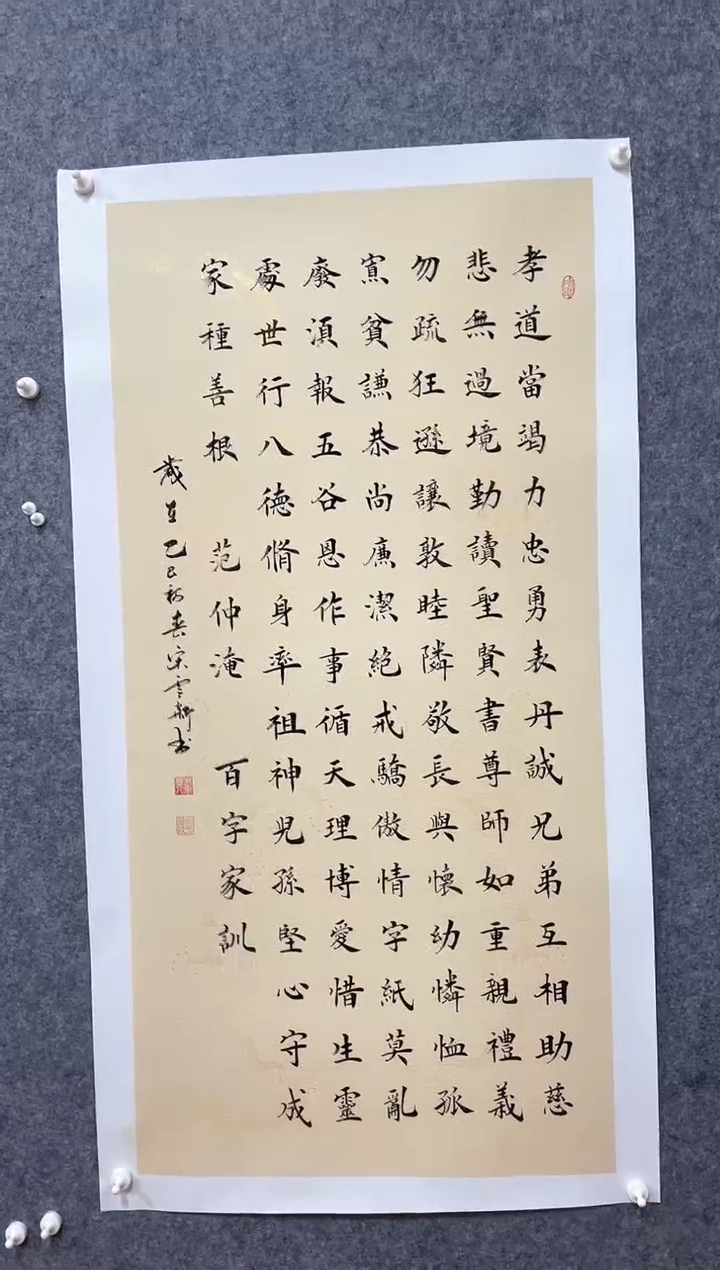 孝道當竭力忠勇表丹誠兄弟互相助慈
悲無過境勤讀聖賢書尊師如重親禮義
勿疏狂遜讓敦睦隣敬長與懷幼憐恤孤
寡貧謙恭尚廉潔絶戒驕傲情字紙莫亂
廢湏報五谷恩作事循天理博愛惜生靈
處世行八德脩身率祖神兒孫堅心守成
家種善根 范仲淹 百字家訓
歲在乙巳初春宋雲 书